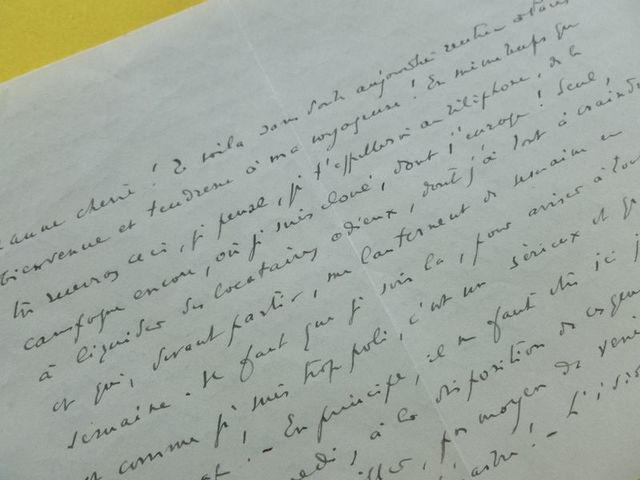 chérie ! Te voilà sans doute aujourd'hui rentrée
bienvenue et tendresse à ma voyageuse ! En même temps que
tu recevras ceci, je pense, je t'appellerai au téléphone, de la
campagne encore, où je suis cloué, dont j'enrage ! Seul,
à liquider des locataires odieux, dont j'ai tout à craindre
et qui, devant partir, me lanternent de semaine en
semaine. Il faut que je sois là, pour aviser à tout
et comme je suis trop poli, c'est un sérieux et
. - En principe, il me faut être ici
à la disposition de ces gens
, pas moyen de
! - L'